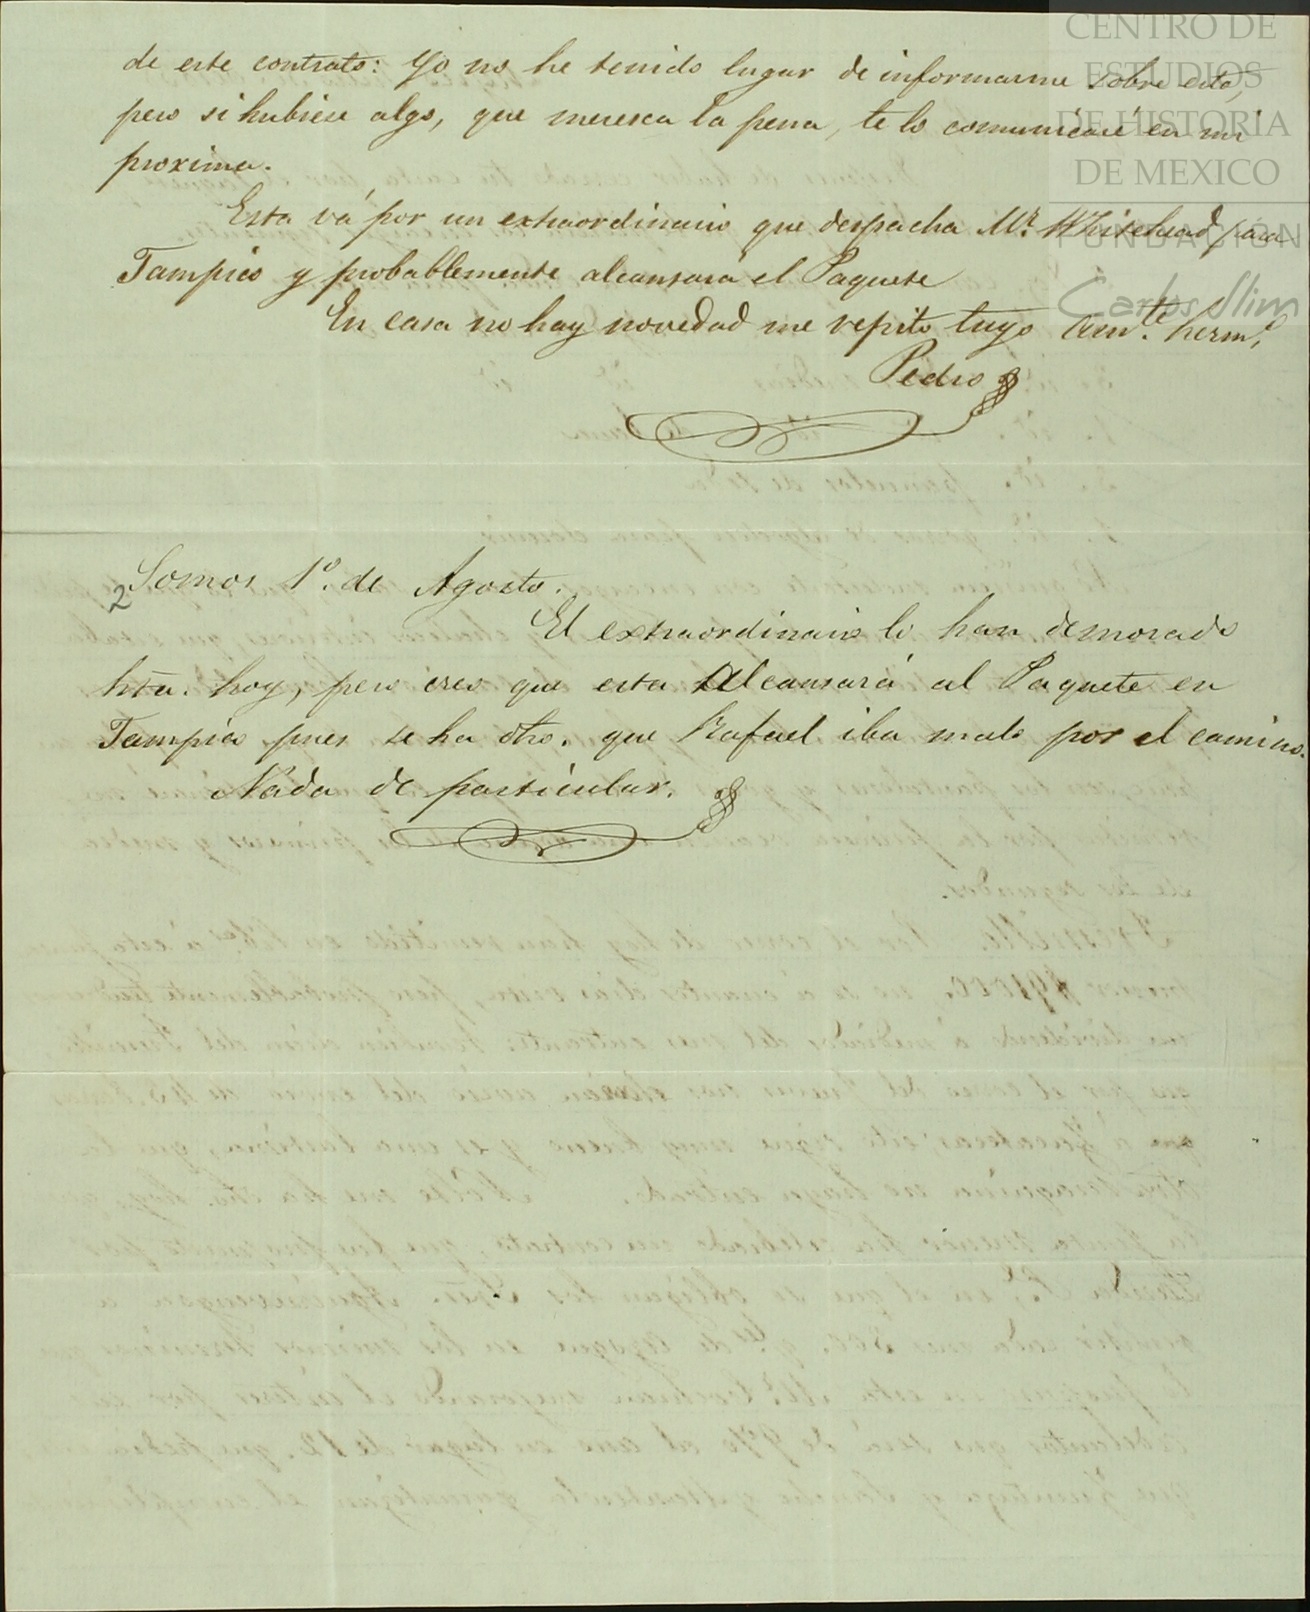 CENTRO DE
ESTUDIOS
DE HISTORIA
DE MEXICO
FUNDACIÓN
Carlos Slim
de este contrato: Yo no he tenido lugar de informarme sobre esto,
pero si hubiese algo, que meresca la pena, te lo comunicaré en mi
proxima.
Esta vá por un extraordinario que despacha Mr. Whitehead para
Tampico y probablemente alcansará el Paquete
En casa no hay novedad me repito tuyo am.te herm.o
Pedro
2
Somos 1º. de Agosto.
El extraordinario lo han demorado
hta. hoy, pero creo que esta alcansará al Paquete en
Tampico pues se ha dho. que Rafael iba malo por el camino.
Nada de particular.